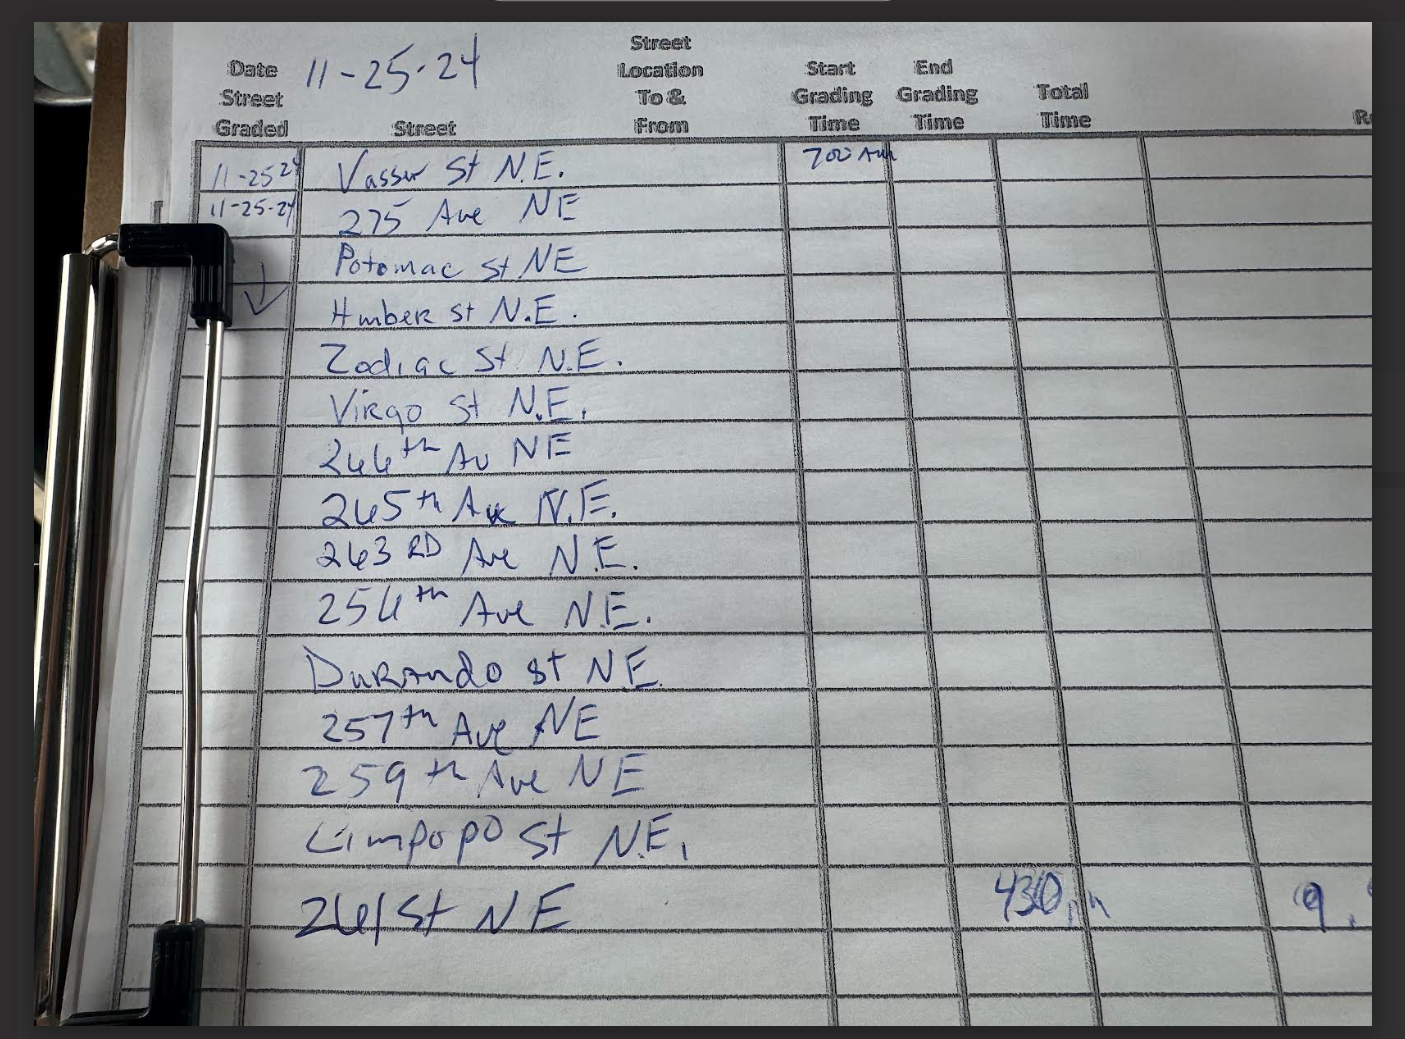 11-25-24
Date Street Graded
Street
Street Location To & From
Start Grading Time
End Grading Time
Total Time
11-25 24 Vassar St N.E. 700 Am
11-25-24 275 Ave NE
Potomac St NE
Humber St N.E.
Zodiac St N.E.
Virgo St N.E.
266th Av NE
265th Ave N.E.
263RD Ave N.E.
256th Ave N.E.
Durando St NE
257th Ave NE
259th Ave NE
Limpopo St N.E.
261st NE 430